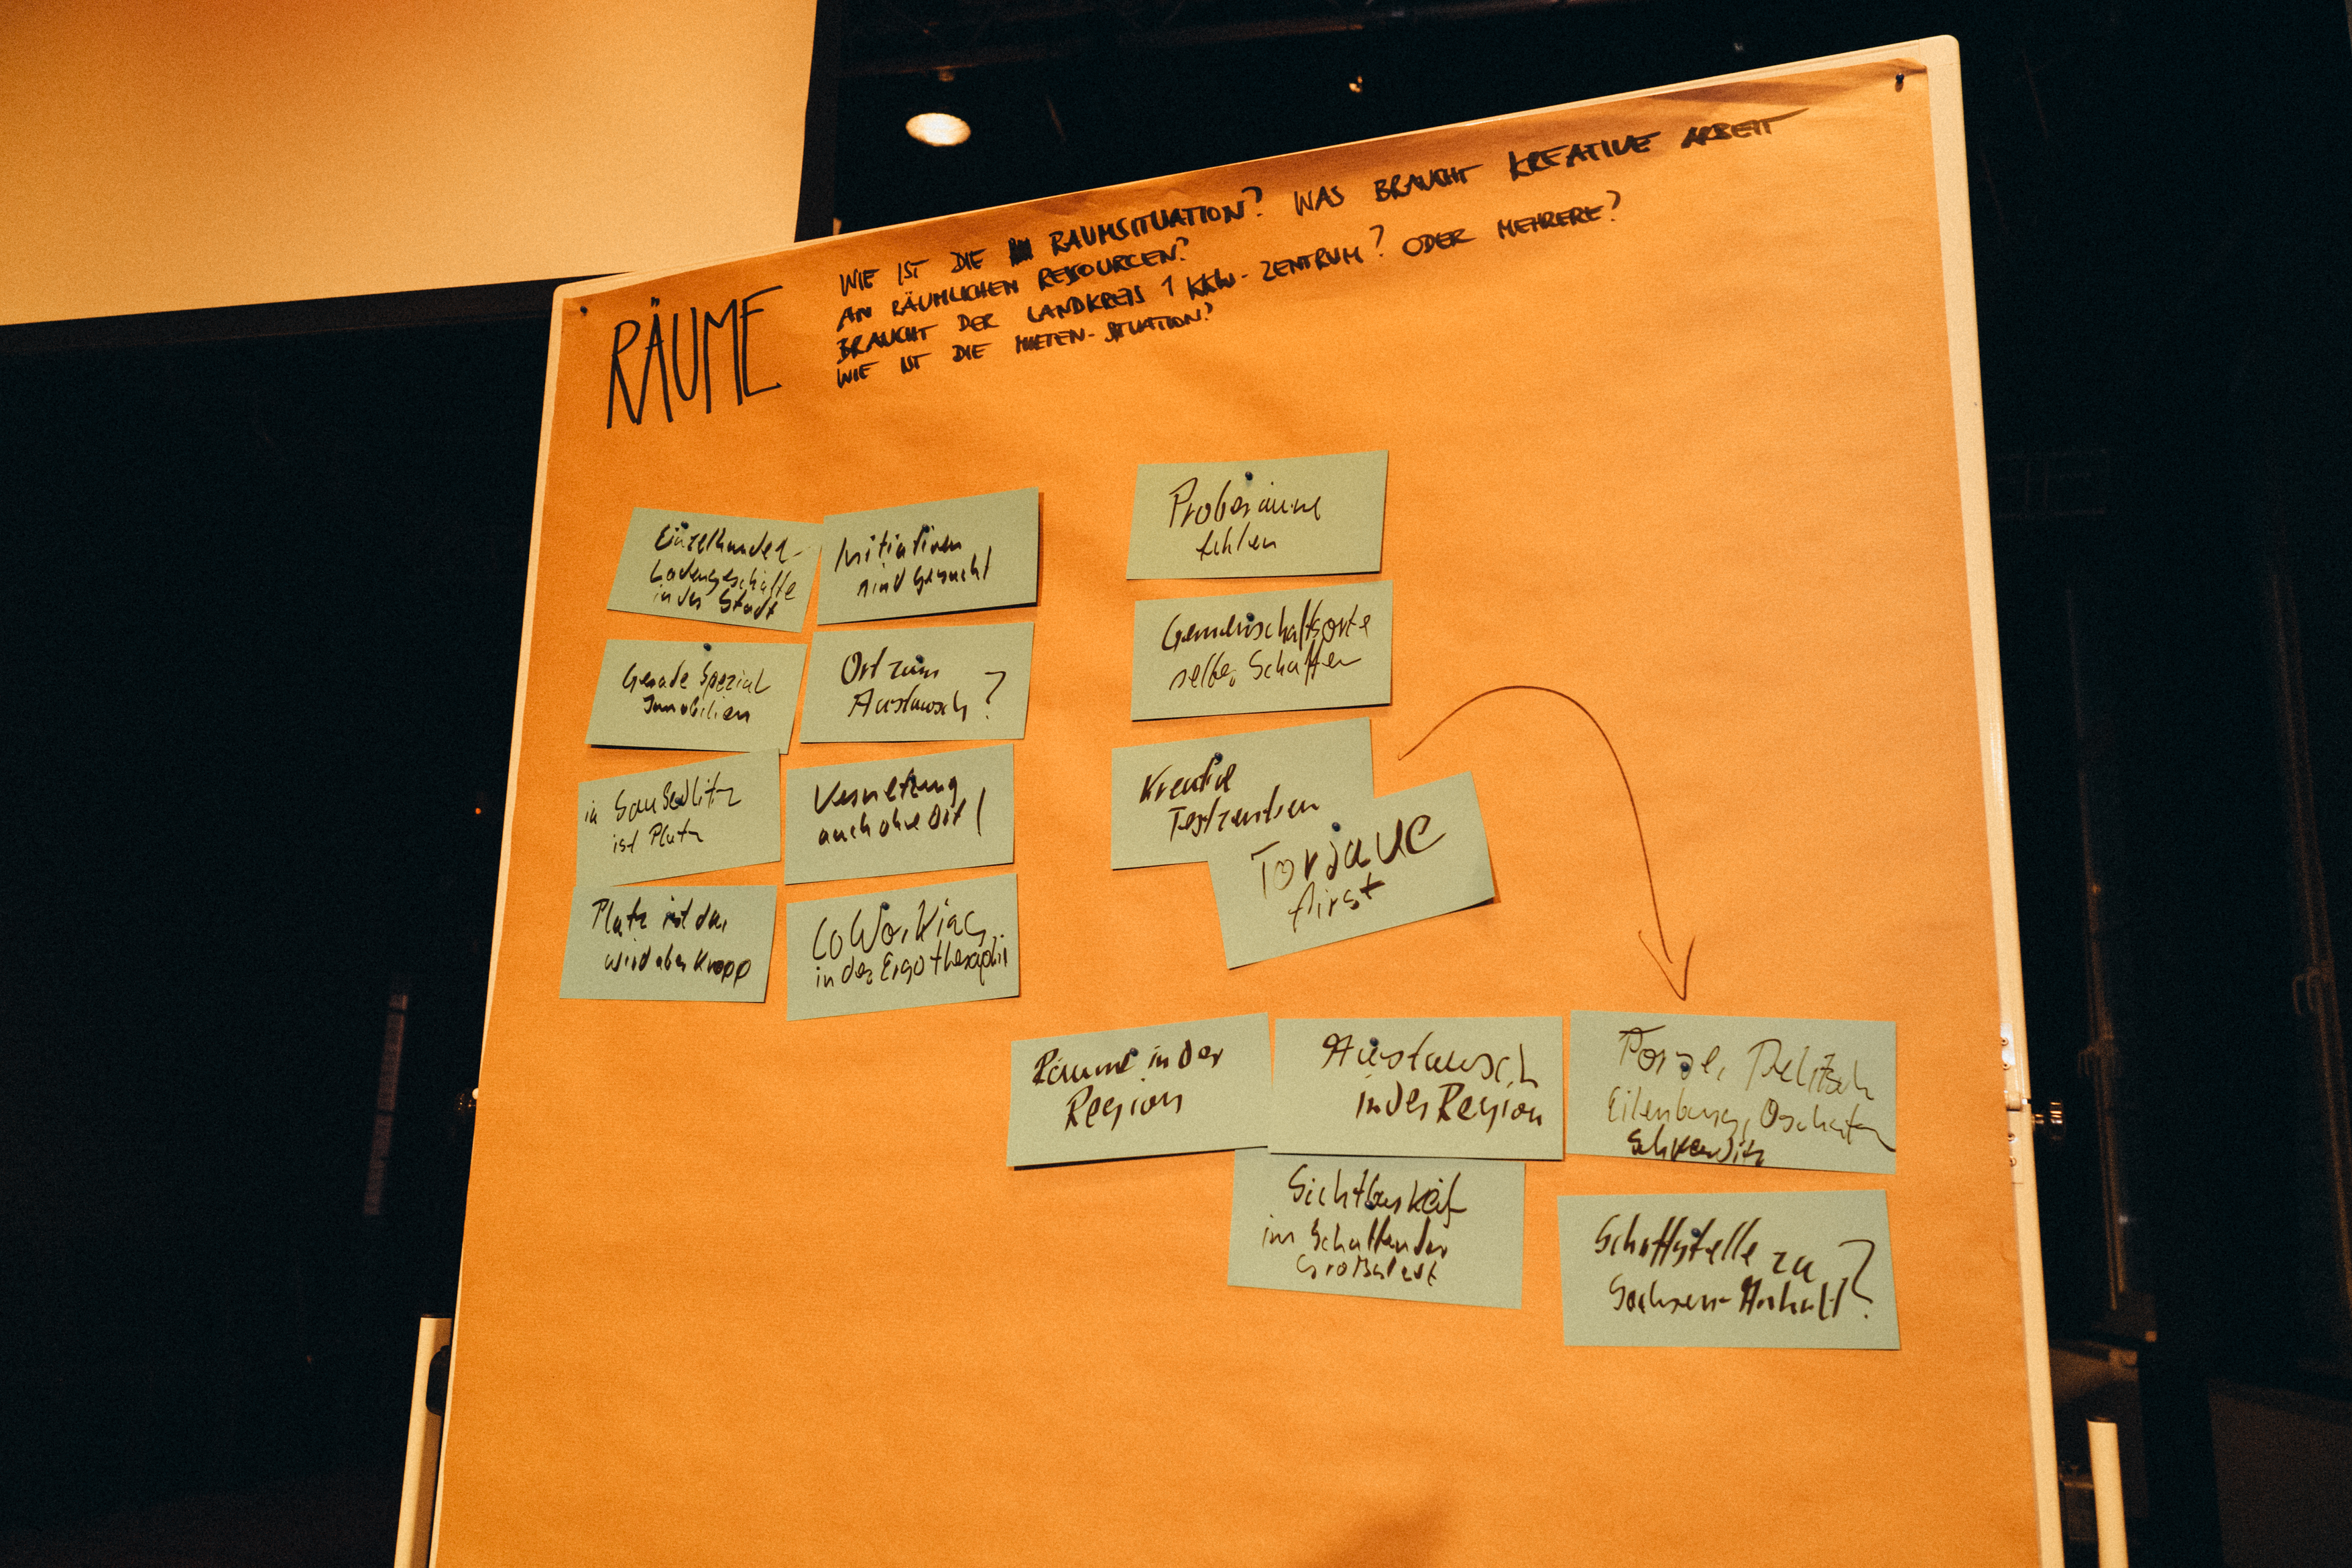 RÄUME
WIE IST DIE RAUMSITUATION? WAS BRAUCHT KREATIVE ARBEIT
AN RÄUMLICHEN RESSOURCEN?
BRAUCHT DER LANDKREIS 1 KKW-ZENTRUM? ODER MEHRERE?
WIE IST DIE MIETEN-SITUATION?
Einzelhandel-
Ladengeschäfte
in der Stadt
Gerade Spezial
Immobilien
in
ist Platz
Platz ist da,
wird aber knapp
Initiativen
sind gesucht
Ort zum
Austausch?
Vernetzung
auch ohne Ort!
CoWorking
in der Ergotherapie
Proberäume
fehlen
Gemeinschaftsorte
selber Schaffen
Kreativ
Torgau
first
Räume in der
Region
Austausch
in der Region
Sichtbarkeit
im Schatten der
Großstadt
Delitzsch
Eilenburg, Oschatz
Schkeuditz
zu
Sachsen-Anhalt?